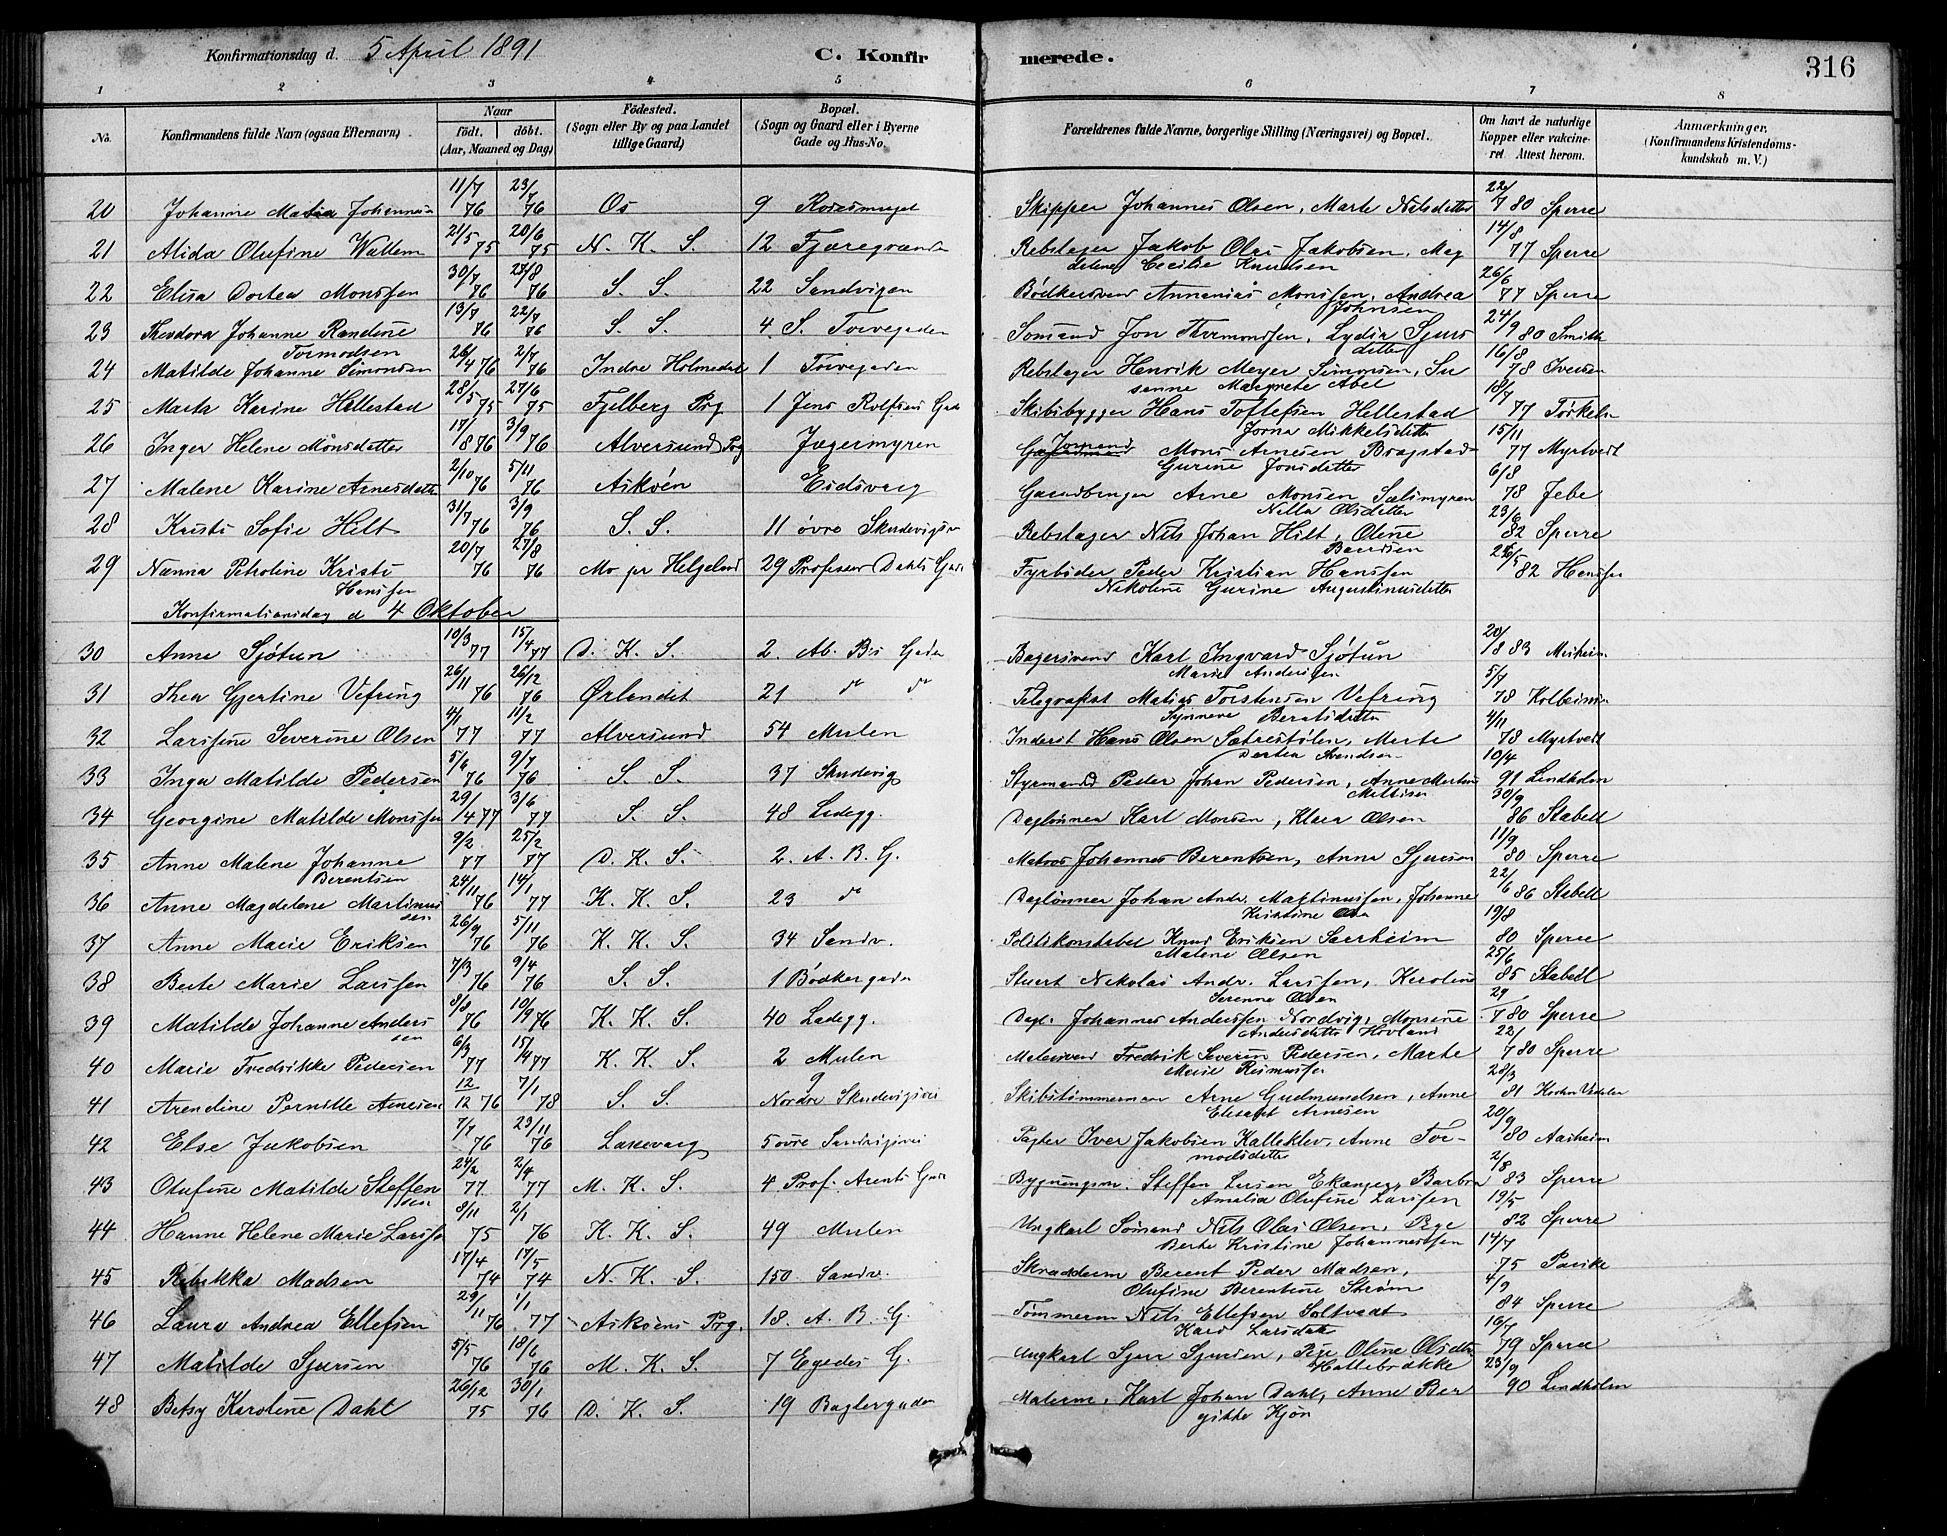 Konfirmationsdag d. 5 April 1891 C. Konfirmerede. 316
1 2 3 4 5 6 7 8
No. Konfirmandens fulde Navn (ogsaa Efternavn). Naar født. døbt. (Aar, Maaned og Dag) Födested. (Sogn eller By og paa Landet tillige Gaard) Bopæl. (Sogn og Gaard eller i Byerne Gade og Hus-No. Forældrenes fulde Navne, borgerlige Stilling (Næringsvei) og Bopæl. Om havt de naturlige Kopper eller vakcineret Attest herom. Anmærkninger. (Konfirmandens Kristendomskundskab m. V.)
20 Johanne Johannesen 11/7 76 23/7 76 Os 9 Skipper Johannes Olsen, Marte Nilsdatter 22/7 80 Sperre
21 Alida Olufine Wallem 21/5 75 20/6 75 N. K. S. 12 Rebslager Jakob Olai Jakobsen, Mag
delene Cecilie Knudsen 14/8 77 Sperre
22 Elisa Dortea Monssen 30/7 76 27/8 76 S. S. 22 Sandvigen Bødkersvend Annanias Monssen, Andrea
Johnsen 26/6 77 Sperre
23 Theodora Johanne Randine
Tormodsen 13/7 76 22/7 76 S. S. 4 S. Torvegaden Sømand Jon Thormodsen, Lydia Sjurs
datter 24/9 80 Smith
24 Matilde Johanne Simonsen 26/4 76 2/7 76 Indre Holmedal 1 Torvegaden Rebslager Henrik Meyer Simonsen, Su
sanne Margrete Abel 16/8 78 Iversen
25 Marta Karine Hellestad 28/5 75 27/6 75 Fjelberg Prg 1 Jens Rolfsens Gade Skibsbygger Hans Toflefsen Hellestad
Jorna Mikkelsdatter 18/7 77 Torkelsen
26 Inger Helene Monsdatter 17/8 76 3/9 76 Alversund Prg Jægermyren Mons Arnesen Bragstad
Gurine Jonsdatter 15/11 77 Myrtvedt
27 Malene Karine Arnesdatter 2/10 76 5/11 76 Askøen Eidsvaag Gaardbruger Arne Monsen Sælsmyren
Nilla Olsdatter 6/8 78 Jebe
28 Kristi Sofie Hilt 31/7 76 3/9 76 S. S. 11 øvre Skudevigsv Rebslager Nils Johan Hilt, Oline 23/6 82 Sperre
29 Nanna Petroline Kristi
Hanssen 20/7 76 27/8 76 Mo pr Helgeland 29 Professor Dahls Gade Fyrbøder Peder Kristian Hanssen
Nikoline Gurine Augustinusdatter 26/5 82 Hanssen
Konfirmationsdag d 4 Oktober
30 Anna Sjøtun 10/3 77 15/4 77 D. K. S. 2. Ab. Bs Gade Bagersvend Karl Ingvard Sjøtun
Marie Andersen 20/8 83
31 Thea Gjertine Vefring 26/11 76 26/12 76 Ørlandet 21 do do Telegrafist Matias Torstensen Vefring
Synneve Berntsdatter 5/7 78
32 Larssine Severine Olsen 4/1 77 11/2 77 Alversund 54 Mulen Inderst Hans Olsen Sætrestølen, Marte
Dortea Svendsen 4/11 78 Myrtvedt
33 Inga Matilde Pedersen 5/6 76 9/7 76 S. S. 37 Skudevig Styrmand Peder Johan Pedersen, Anne Martine 10/4 91 Lindholm
34 Georgine Matilde Monssen 29/4 77 3/6 77 S. S. 48 Ladegg. Daglønner Karl Monsen, Klara Olsen 30/9 86 Stabell
35 Anne Malene Johanne
Berentsen 9/2 77 25/2 77 D. K. S. 2. A. B. G. Matros Johannes Berentsen, Anna Sjursen 11/9 80 Sperre
36 Anne Magdelene Martinus
sen 24/11 76 14/1 77 K. K. S. 23 do Daglønner Johan Andr. Martinussen, Johanne
Kristine 22/6 86 Stabell
37 Anne Marie Eriksen 26/9 76 5/11 76 K. K. S. 34 Sandv. Politikonstabel Knud Eriksen Saerheim
Malene Olsen 19/8 80 Sperre
38 Berte Marie Larssen 7/3 76 9/4 76 S. S. 1 Bødkergaden Stuert Nikolai Andr. Larssen, Karoline
Serenne Olsen 25/6 85 Stabell
39 Matilde Johanne Anders
sen 8/8 76 10/9 76 K. K. S. 40 Ladegg. Dagl. Johannes Anderssen Nordvig, Monsine
Andersdatter Hovland 29/7 80 Sperre
40 Marie Fredrikke Pedersen 6/3 77 15/4 77 K. K. S. 2 Mulen Malersvend Fredrik Severin Pedersen, Marte
Marie Rasmussen 22/7 80 Sperre
41 Arendine Pernille Arnesen 12/12 76 7/1 78 S. S. 9 Nordre Skudevigsvei Skibstømmerman Arne Gudmundsen, Anne
Elisabet Arnesen 28/3 81
42 Else Jakobsen 7/7 76 23/11 76 Laksevaag 5 øvre Sandvigsvei Pagter Iver Jakobsen Kalleklev, Anne Tor-
modsdatter 20/9 80 Aarheim
43 Olufine Matilde Steffen
sen 24/2 77 2/4 77 M. K. S. 4 Prof. Arents Gade Bygningsm. Steffen Larsen Ekanger, Barbra
Amalia Olufine Larssen 2/8 83 Sperre
44 Hanne Helene Marie Larssen 8/11 75 2/1 76 K. K. S. 49 Mulen Ungkarl Sømand Nils Olai Olsen, Pige
Berte Kristine Johannessen 19/5 82 Sperre
45 Rebekka Madsen 17/4 74 17/5 74 N. K. S. 150 Sandv. Skrædderm Berent Peder Madsen,
Olufine Berentine Strøm 14/7 75
46 Laura Andrea Ellefsen 29/11 76 1/1 77 Askøens Prg. 18. A. B. G. Tømmerm Nils Ellefsen Soltvedt
Kari Larsdatter 4/9 84 Sperre
47 Matilde Sjursen 5/5 76 18/6 76 M. K. S. 7 Egedes G. Ungkarl Sjur Sjursen, Pige Oline Olsdatter
Hallebrække 16/7 79 Sperre
48 Betsy Karoline Dahl 26/12 75 30/1 76 D. K. S. 19 Baglergaden Malerm. Karl Johan Dahl, Anne Ber
gitte Kjøn 23/9 90 Lindholm